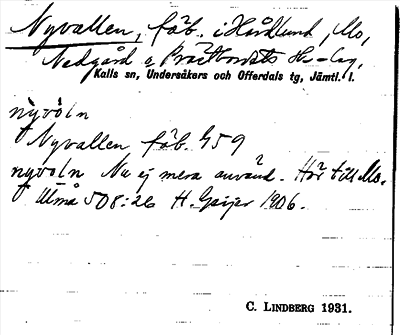 Nyvallen, fäb. i Hårdlund, Mo,
Nedgård o. Prästbordets Hn-lag,
Kalls sn, Undersåkers och Offerdals tg, Jämtl. l.
nỳvòln
Nyvallen fäb. G59
nyvoln Nu ej mera använd. Hör till Mo.
Utmå 508:26 H. Geijer 1906.
C. LINDBERG 1931.